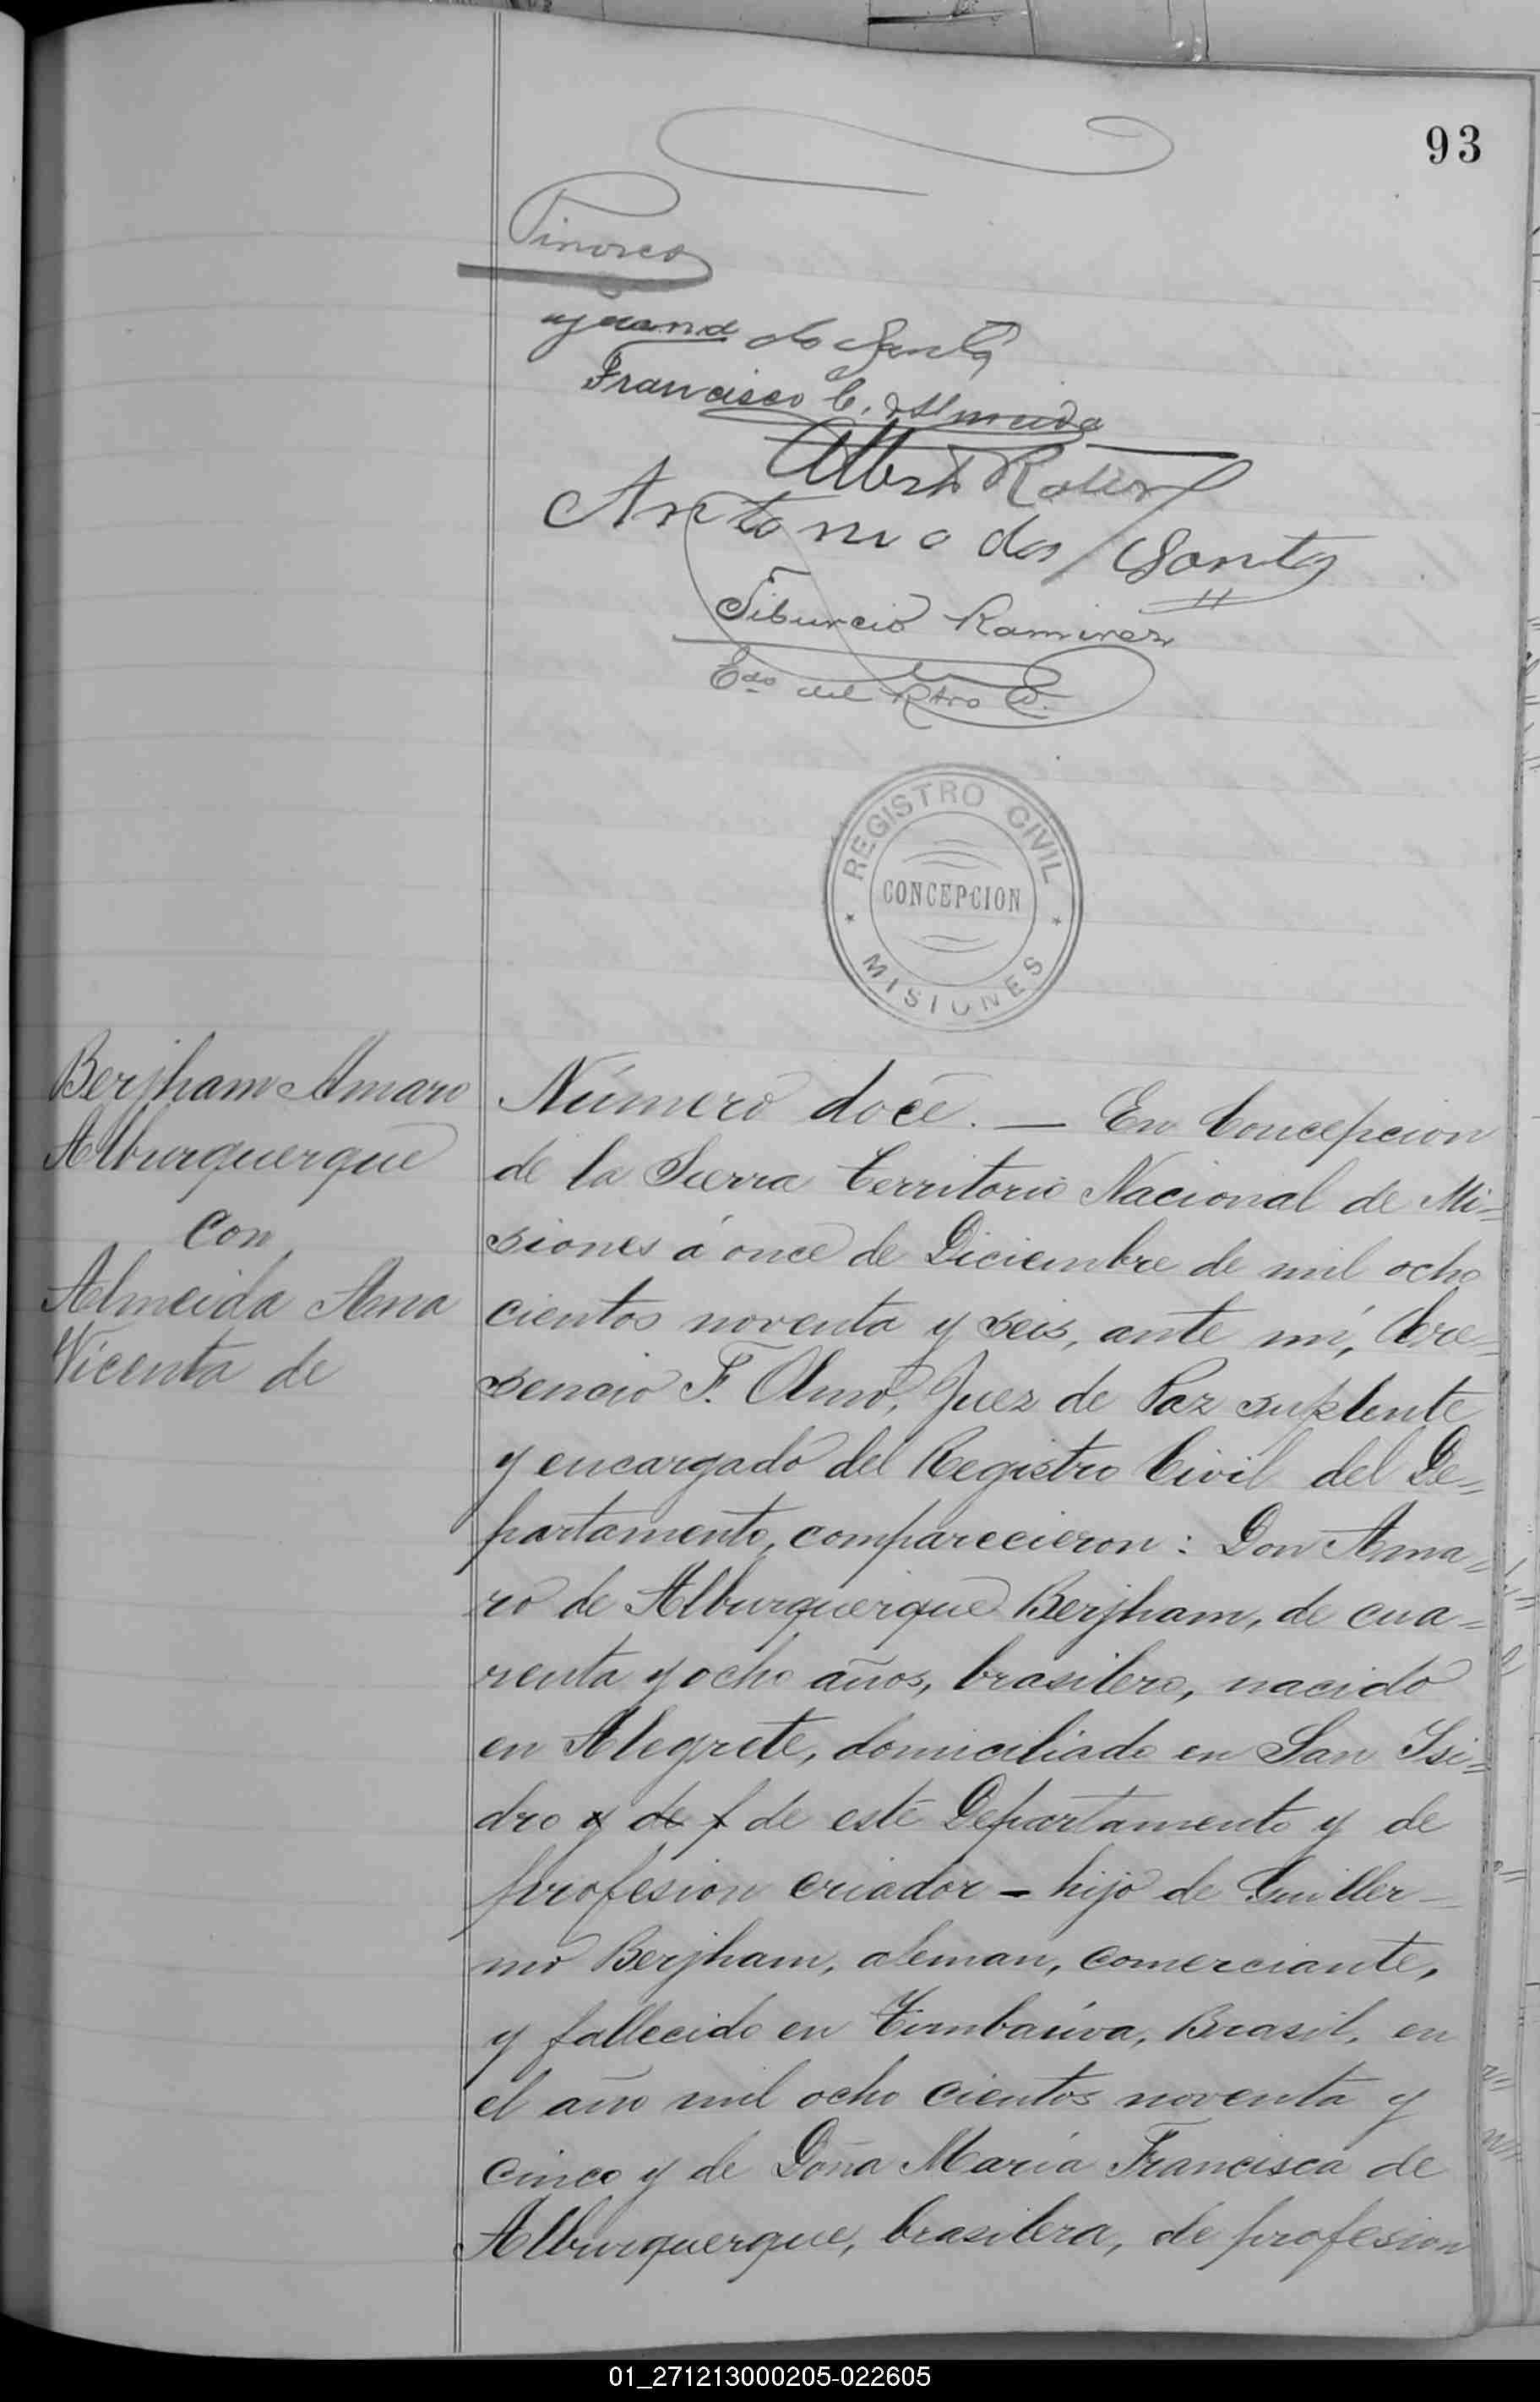 93
Francisco C. d'Almeida
Antonio dos Santos
Tiburcio Ramirez
Edo del Rtro C.
REGISTRO CIVIL
CONCEPCION
MISIONES
Berjham Amaro
Alburquerque
con
Almeida Ana
Vicenta de
Número doce. — En Concepcion
de la Sierra Territorio Nacional de Mi=
siones á once de Diciembre de mil ocho
cientos noventa y seis, ante mí, Cre=
sencio F. Olmo, Juez de Paz suplente
y encargado del Registro Civil del De=
partamento, comparecieron: Don Ama=
ro de Alburquerque Berjham, de cua=
renta y ocho años, brasilero, nacido
en Alegrete, domiciliado en San Isi=
dro y de f de este Departamento y de
profesion criador - hijo de Guiller-
mo Berjham, aleman, comerciante,
y fallecido en Timbaúva, Brasil, en
el año mil ocho cientos noventa y
cinco y de Doña María Francisca de
Alburquerque, brasilera, de profesion
01_271213000205-022605